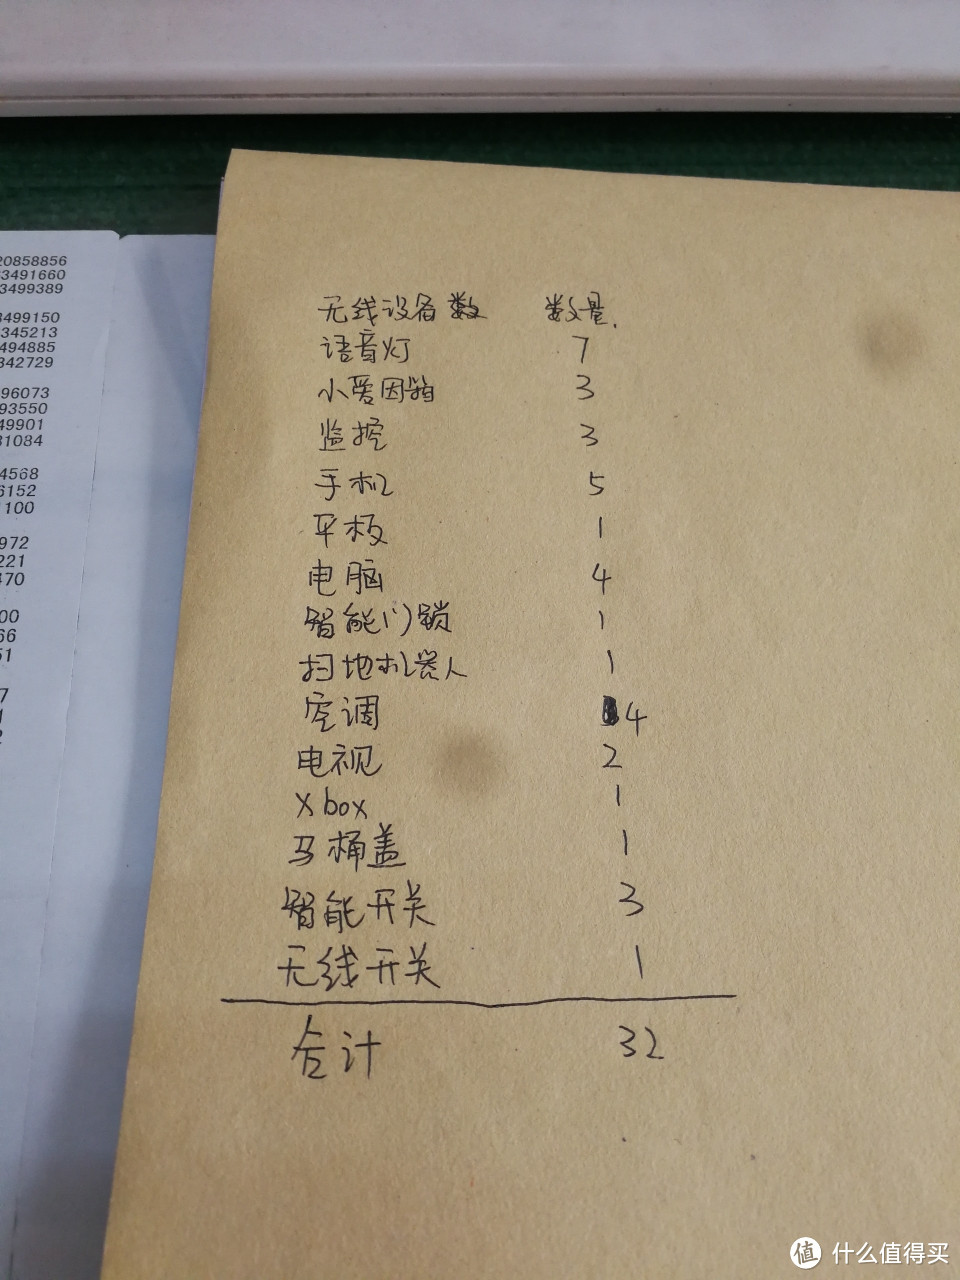 20858856
3491660
3499389
3499150
345213
494885
342729
96073
93550
49901
31084
4568
6152
1100
972
221
370
00
66
51
7
1
2
无线设备数 数量.
语音灯 7
小爱因箱 3
监控 3
手机 5
平板 1
电脑 4
智能门锁 1
扫地机器人 1
空调 4
电视 2
xbox 1
马桶盖 1
智能开关 3
无线开关 1
合计 32
值 什么值得买